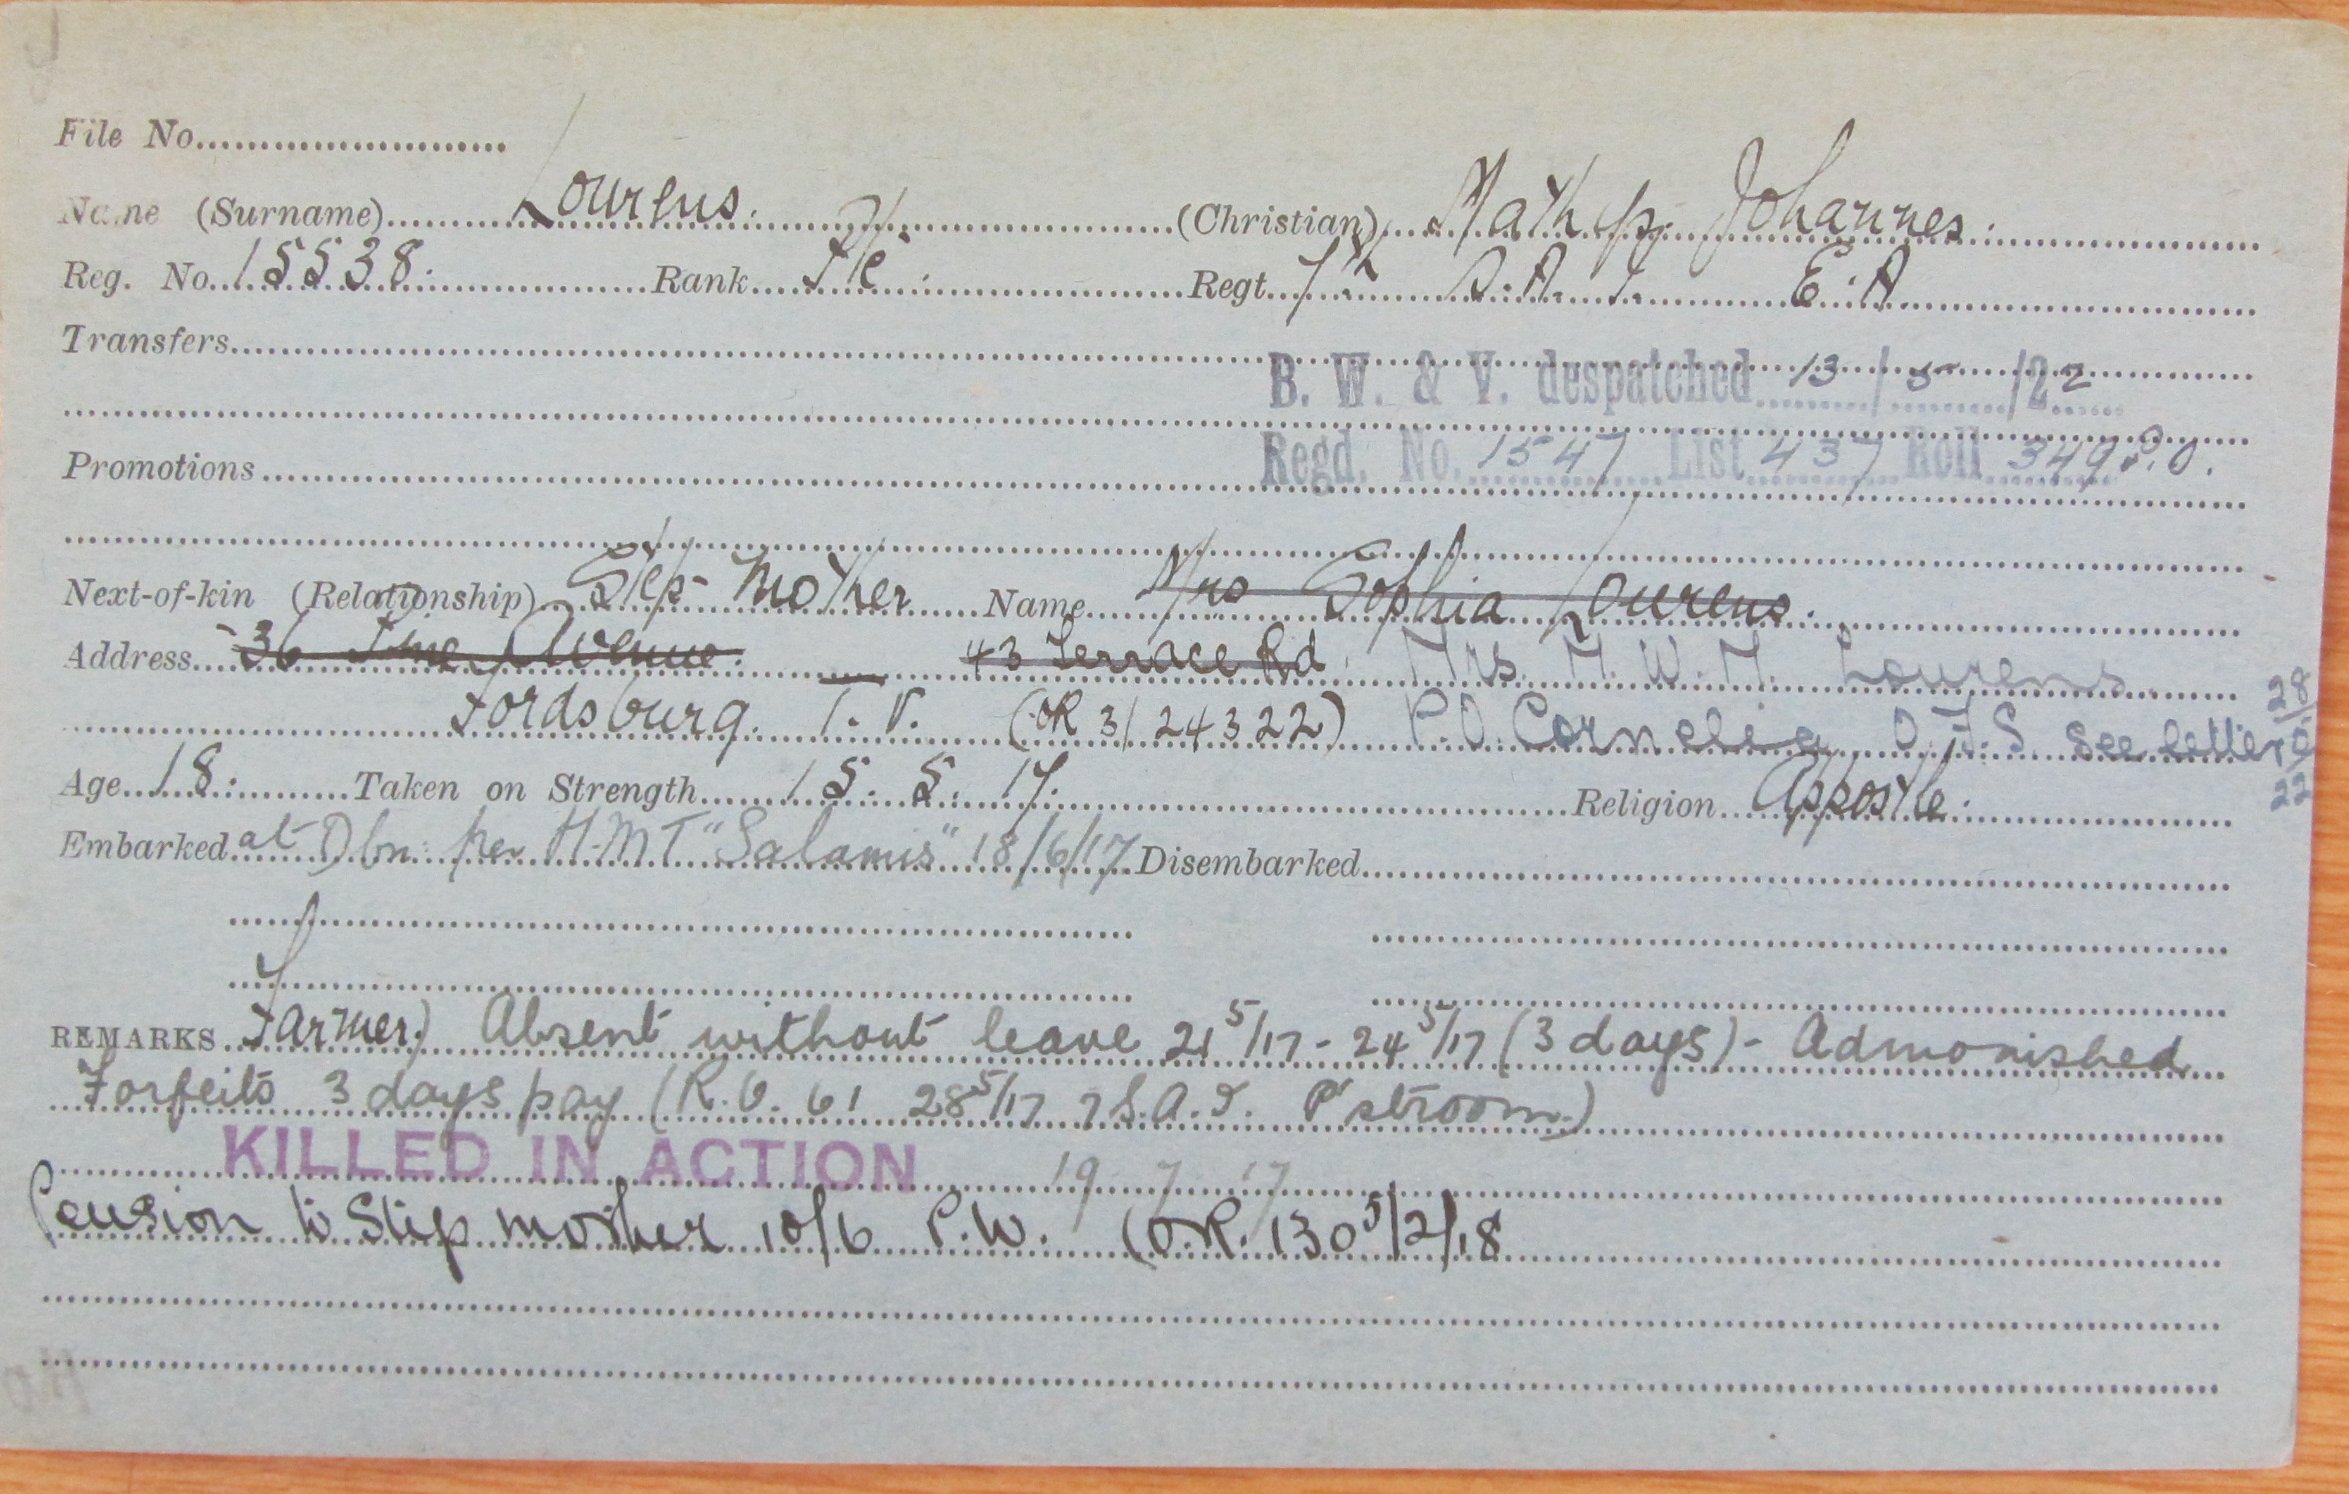 File No.
Name (Surname) Lourens. (Christian) Mathys Johannes.
Reg. No. 15538. Rank Pte. Regt. 7th S.A.I. E.A.
Transfers
B. W. & V. despatched 13/5/22
Regd. No. 1547 List 437 Roll 349 P.O.
Promotions
Next-of-kin (Relationship) Step-Mother Name Mrs Sophia Lourens.
Address 36 Pine Avenue. 43 Terrace Rd. Mrs. M. W. M. Lourens
Fordsburg. T.V. (OR 3/24322) P.O. Cornelia O.F.S. see letter 28/6/22
Age 18. Taken on Strength 15. 5. 17. Religion Apostle.
Embarked at Dbn: per H.M.T "Salamis" 18/6/17 Disembarked
REMARKS Farmer.) Absent without leave 21/5/17 - 24/5/17 (3 days) - Admonished
Forfeits 3 days pay (R.O. 61 28/5/17 7 S.A.I. P'stroom.)
KILLED IN ACTION 19 7 17
Pension to Step mother 10/6 P.W. (O.R. 130 5/2/18